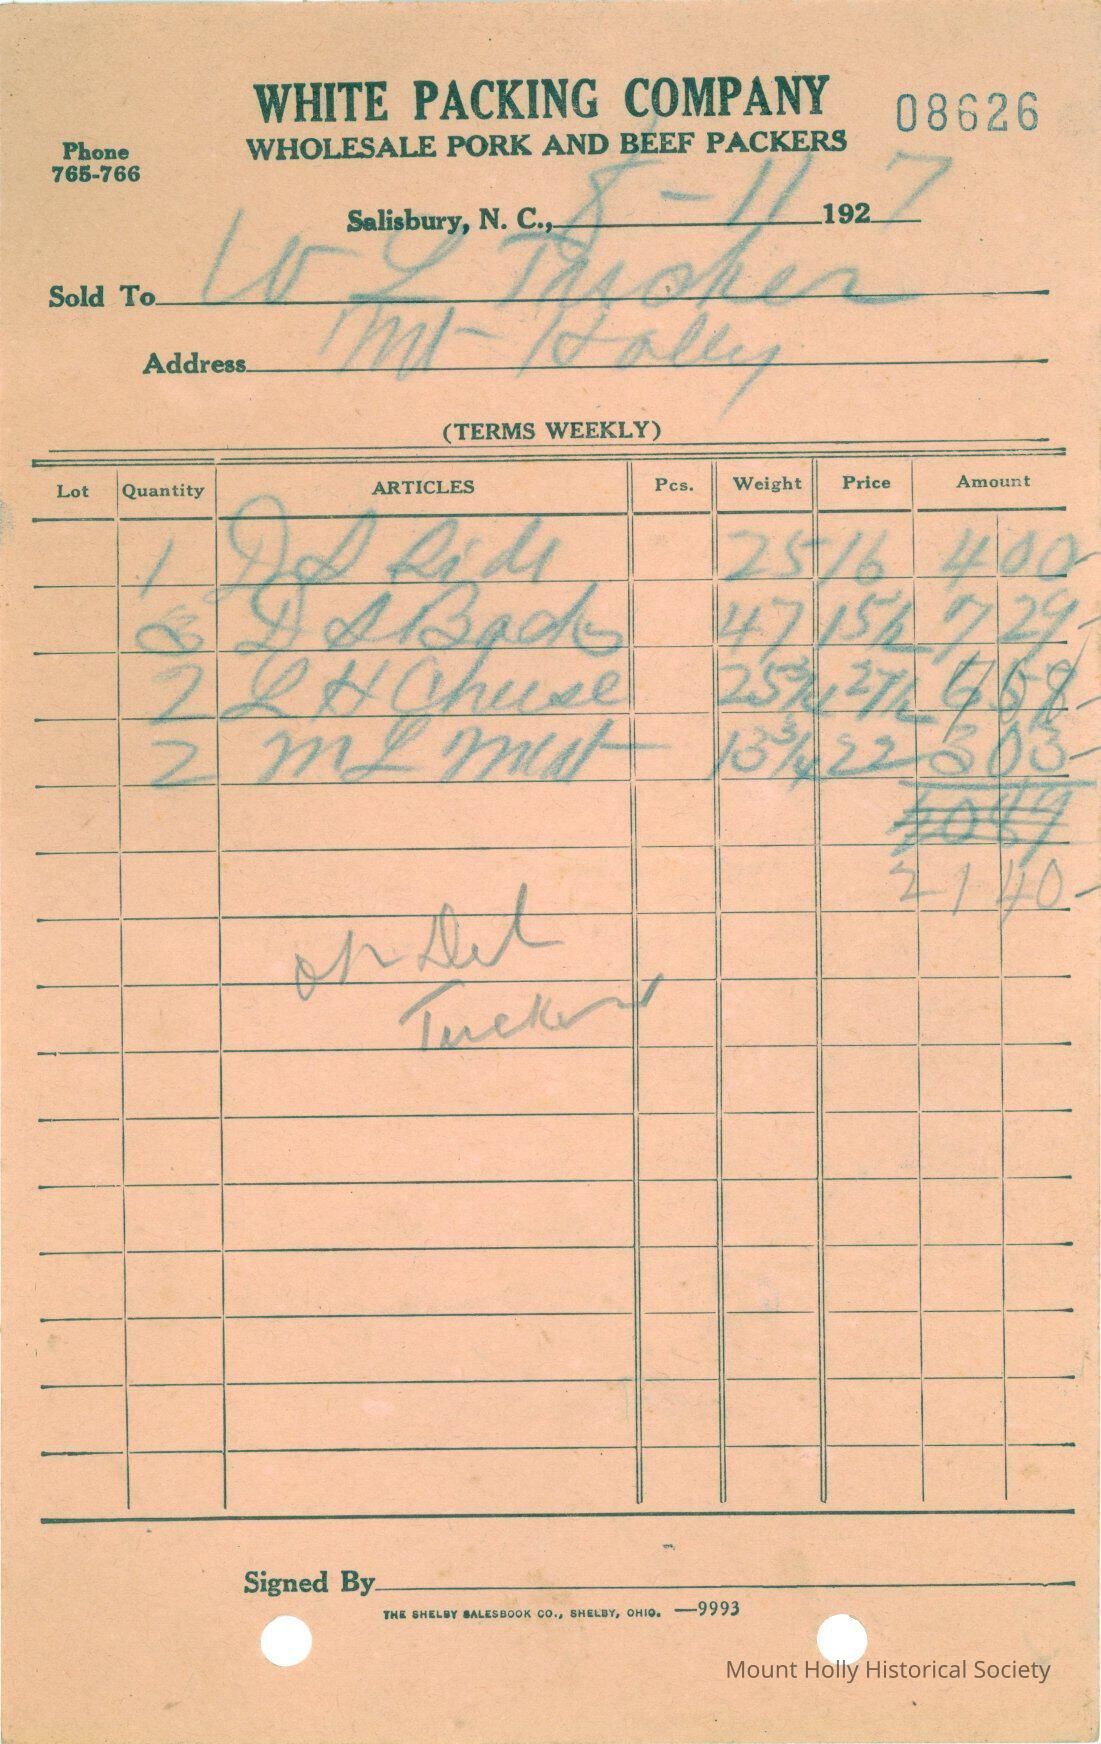 WHITE PACKING COMPANY
08626
WHOLESALE PORK AND BEEF PACKERS
Phone
765-766
Salisbury, N. C., 8-11 1927
Sold To W L Tucker
Address Mt Holly
(TERMS WEEKLY)
Lot Quantity ARTICLES Pcs. Weight Price Amount
1 D S Side 25 16 4 00
8 D S Backs 47 15½ 7 29
2 L H Cheese 25¾ 27½
2 M L 13¾ 22 3 03
21 40
Del
Tucker
Signed By
THE SHELBY SALESBOOK CO., SHELBY, OHIO. —9993
Mount Holly Historical Society